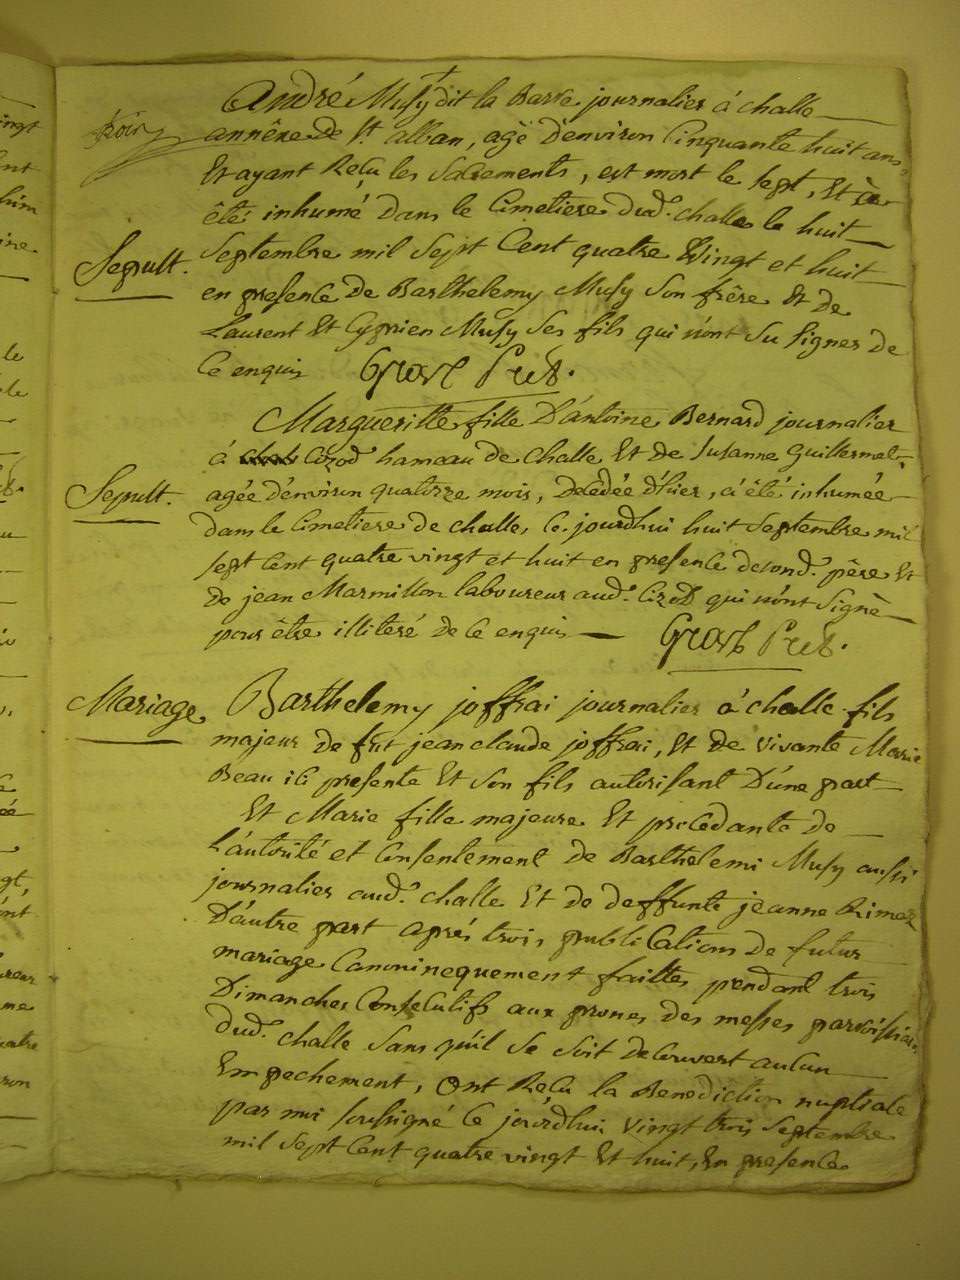 André Musy dit la Barre journalier á challe
annêxe de St. alban, agé d'environ Cinquante huit ans
Et ayant Reçu les Sacrements, est mort le sept, Et à
êté inhumé dans le Cimetiere dud. challe le huit
Sepult.
Septembre mil Sept Cent quatre Vingt et huit
en presence de Barthelemy Musy Son frêre Et de
Laurent Et Cyprien Musy Ses fils qui n'ont Su Signer de
Ce enquis
Margueritte fille D'antoine Bernard journalier
á Cozod hameau de challe Et de Susanne Guillermet,
Sepult.
agée d'environ quatorze mois, Decédée d'hier, á êté inhumée
dans le Cimetiere de challe, Ce jourdhui huit Septembre mil
sept Cent quatre vingt et huit en presence de sond. père Et
de jean Marmillon laboureur aud. Cizod qui n'ont Signè
pour être illiteré de Ce enquis
Mariage
Barthelemy joffrai journalier á challe fils
majeur de fut jean claude joffrai, Et de vivante Marie
Beau ici presente Et Son fils autorisant D'une part
Et Marie fille majeure Et procedante de
L'autorité et Consentement de Barthelemi Musy aussi
journalier aud. challe Et de deffunte jeanne
D'autre part aprés trois publications de futur
mariage Canoninequement faittes pendant trois
Dimanches Consecutifs aux prones des messes
dud. challe Sans qu'il se soit decouvert aucun
Empechement, ont Reçu la Benediction nuptiale
par moi soussigné Ce jourdhui vingt trois Septembre
mil Sept Cent quatre vingt Et huit, En presence